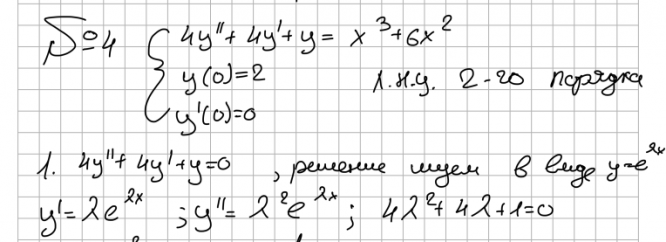 №4 { 4y'' + 4y' + y = x³ + 6x²
y(0) = 2 л.н.у. 2-го порядка
y'(0) = 0
1. 4y'' + 4y' + y = 0 , решение ищем в виде y = e^λx
y' = λe^λx ; y'' = λ²e^λx ; 4λ² + 4λ + 1 = 0